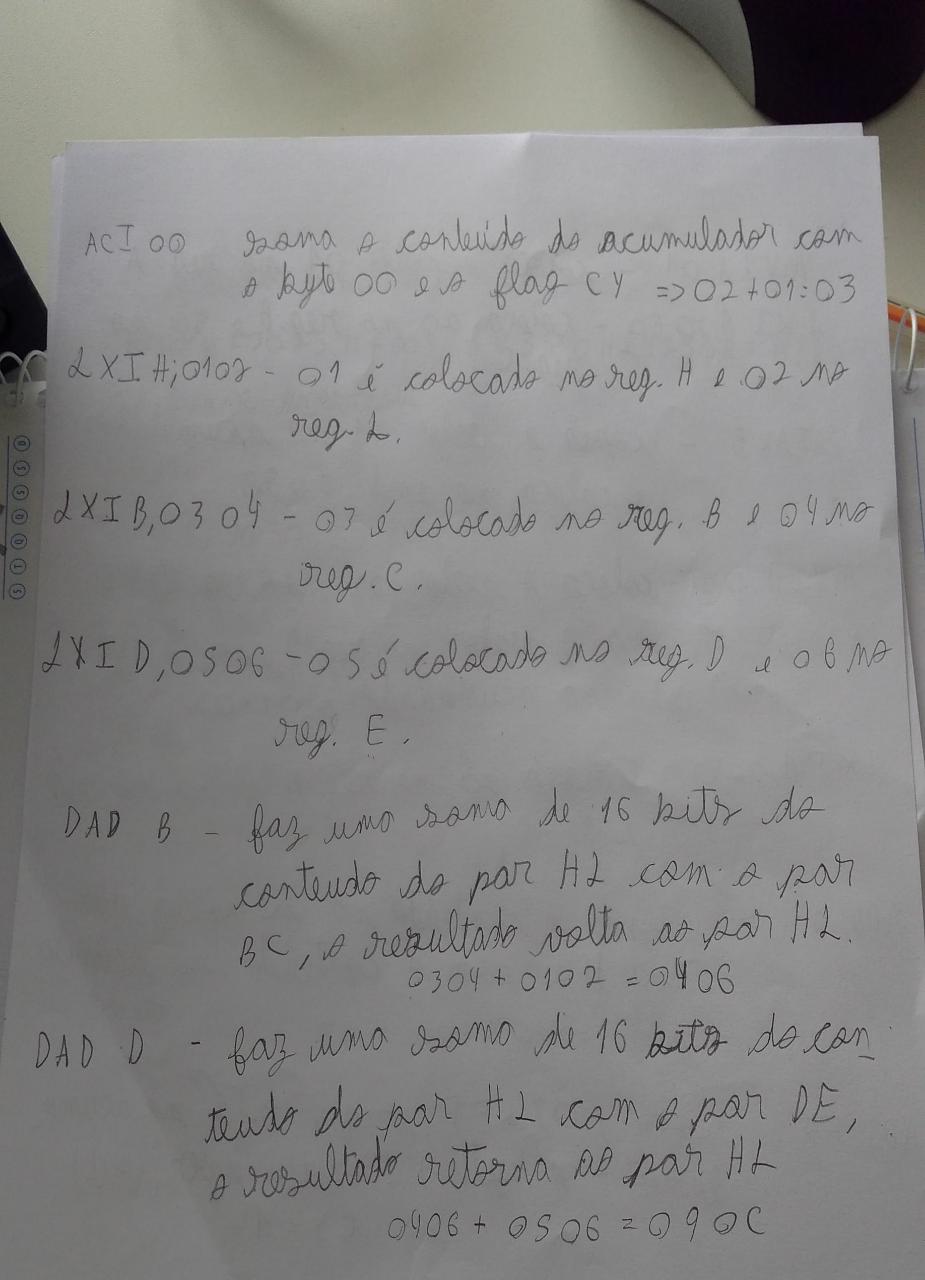 ACI 00 soma o conteúdo do acumulador com
o byte 00 e o flag CY => 02+01:03
LXI H;0102 - 01 é colocado no reg. H e 02 no
reg. L.
LXI B,0304 - 03 é colocado no reg. B e 04 no
reg. C.
LXI D,0506 - 05 é colocado no reg. D e 06 no
reg. E.
DAD B - faz uma soma de 16 bits do
conteudo do par HL com o par
BC, o resultado volta ao par HL.
0304 + 0102 = 0406
DAD D - faz uma soma de 16 bits do con_
teudo do par HL com o par DE,
o resultado retorna ao par HL
0406 + 0506 = 090C
D S S Q Q T S